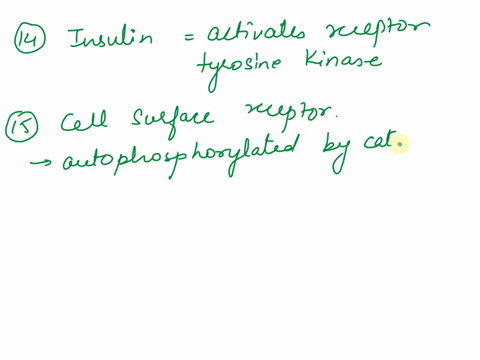 14 Insulin = activates receptor
tyrosine kinase
15 Cell surface receptor.
→ autophosphorylated by cat